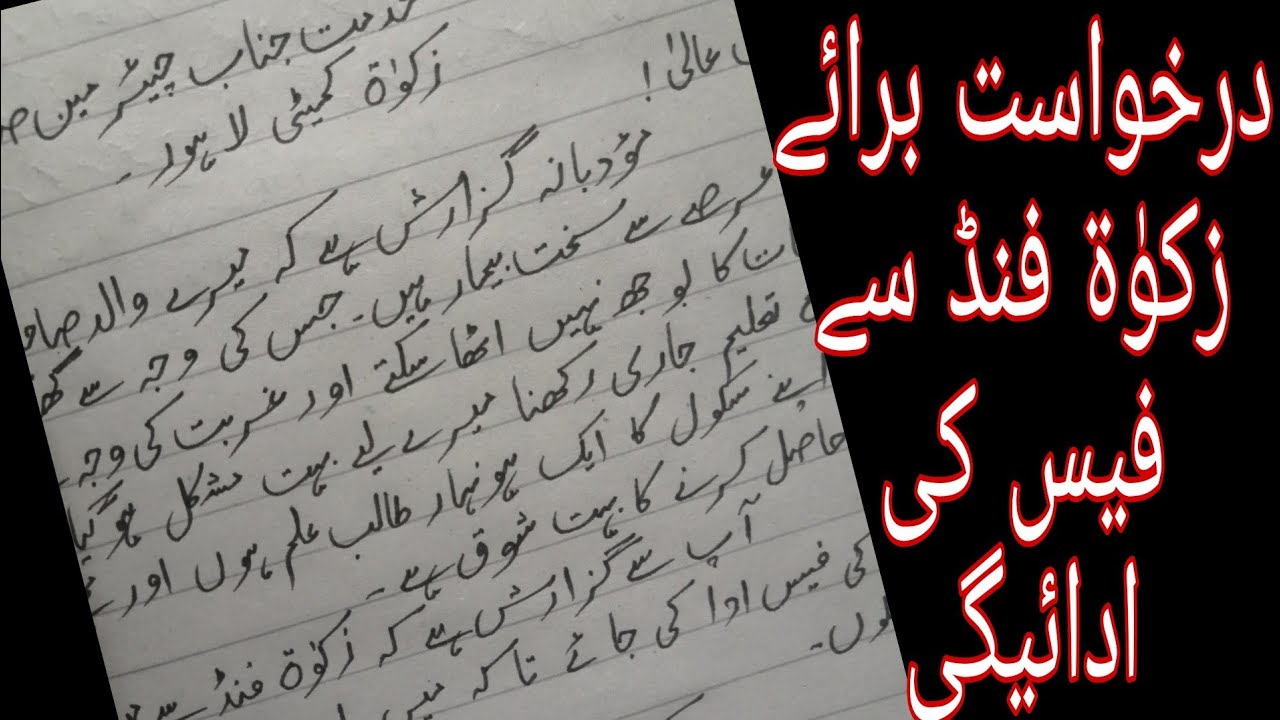 درخواست برائے
زکوٰۃ فنڈ سے
فیس کی
ادائیگی
خدمت جناب چیئرمین
زکوٰۃ کمیٹی لاہور۔
عالیٰ!
مؤدبانہ گزارش ہے کہ میرے والد
عرصے سے سخت بیمار ہیں۔ جس کی وجہ سے
کا بوجھ نہیں اٹھا سکتے اور غربت کی وجہ
تعلیم جاری رکھنا میرے لیے بہت مشکل ہو گیا
اپنے سکول کا ایک ہونہار طالب علم ہوں اور
حاصل کرنے کا بہت شوق ہے۔
آپ سے گزارش ہے کہ زکوٰۃ فنڈ سے
کی فیس ادا کی جائے تاکہ میں